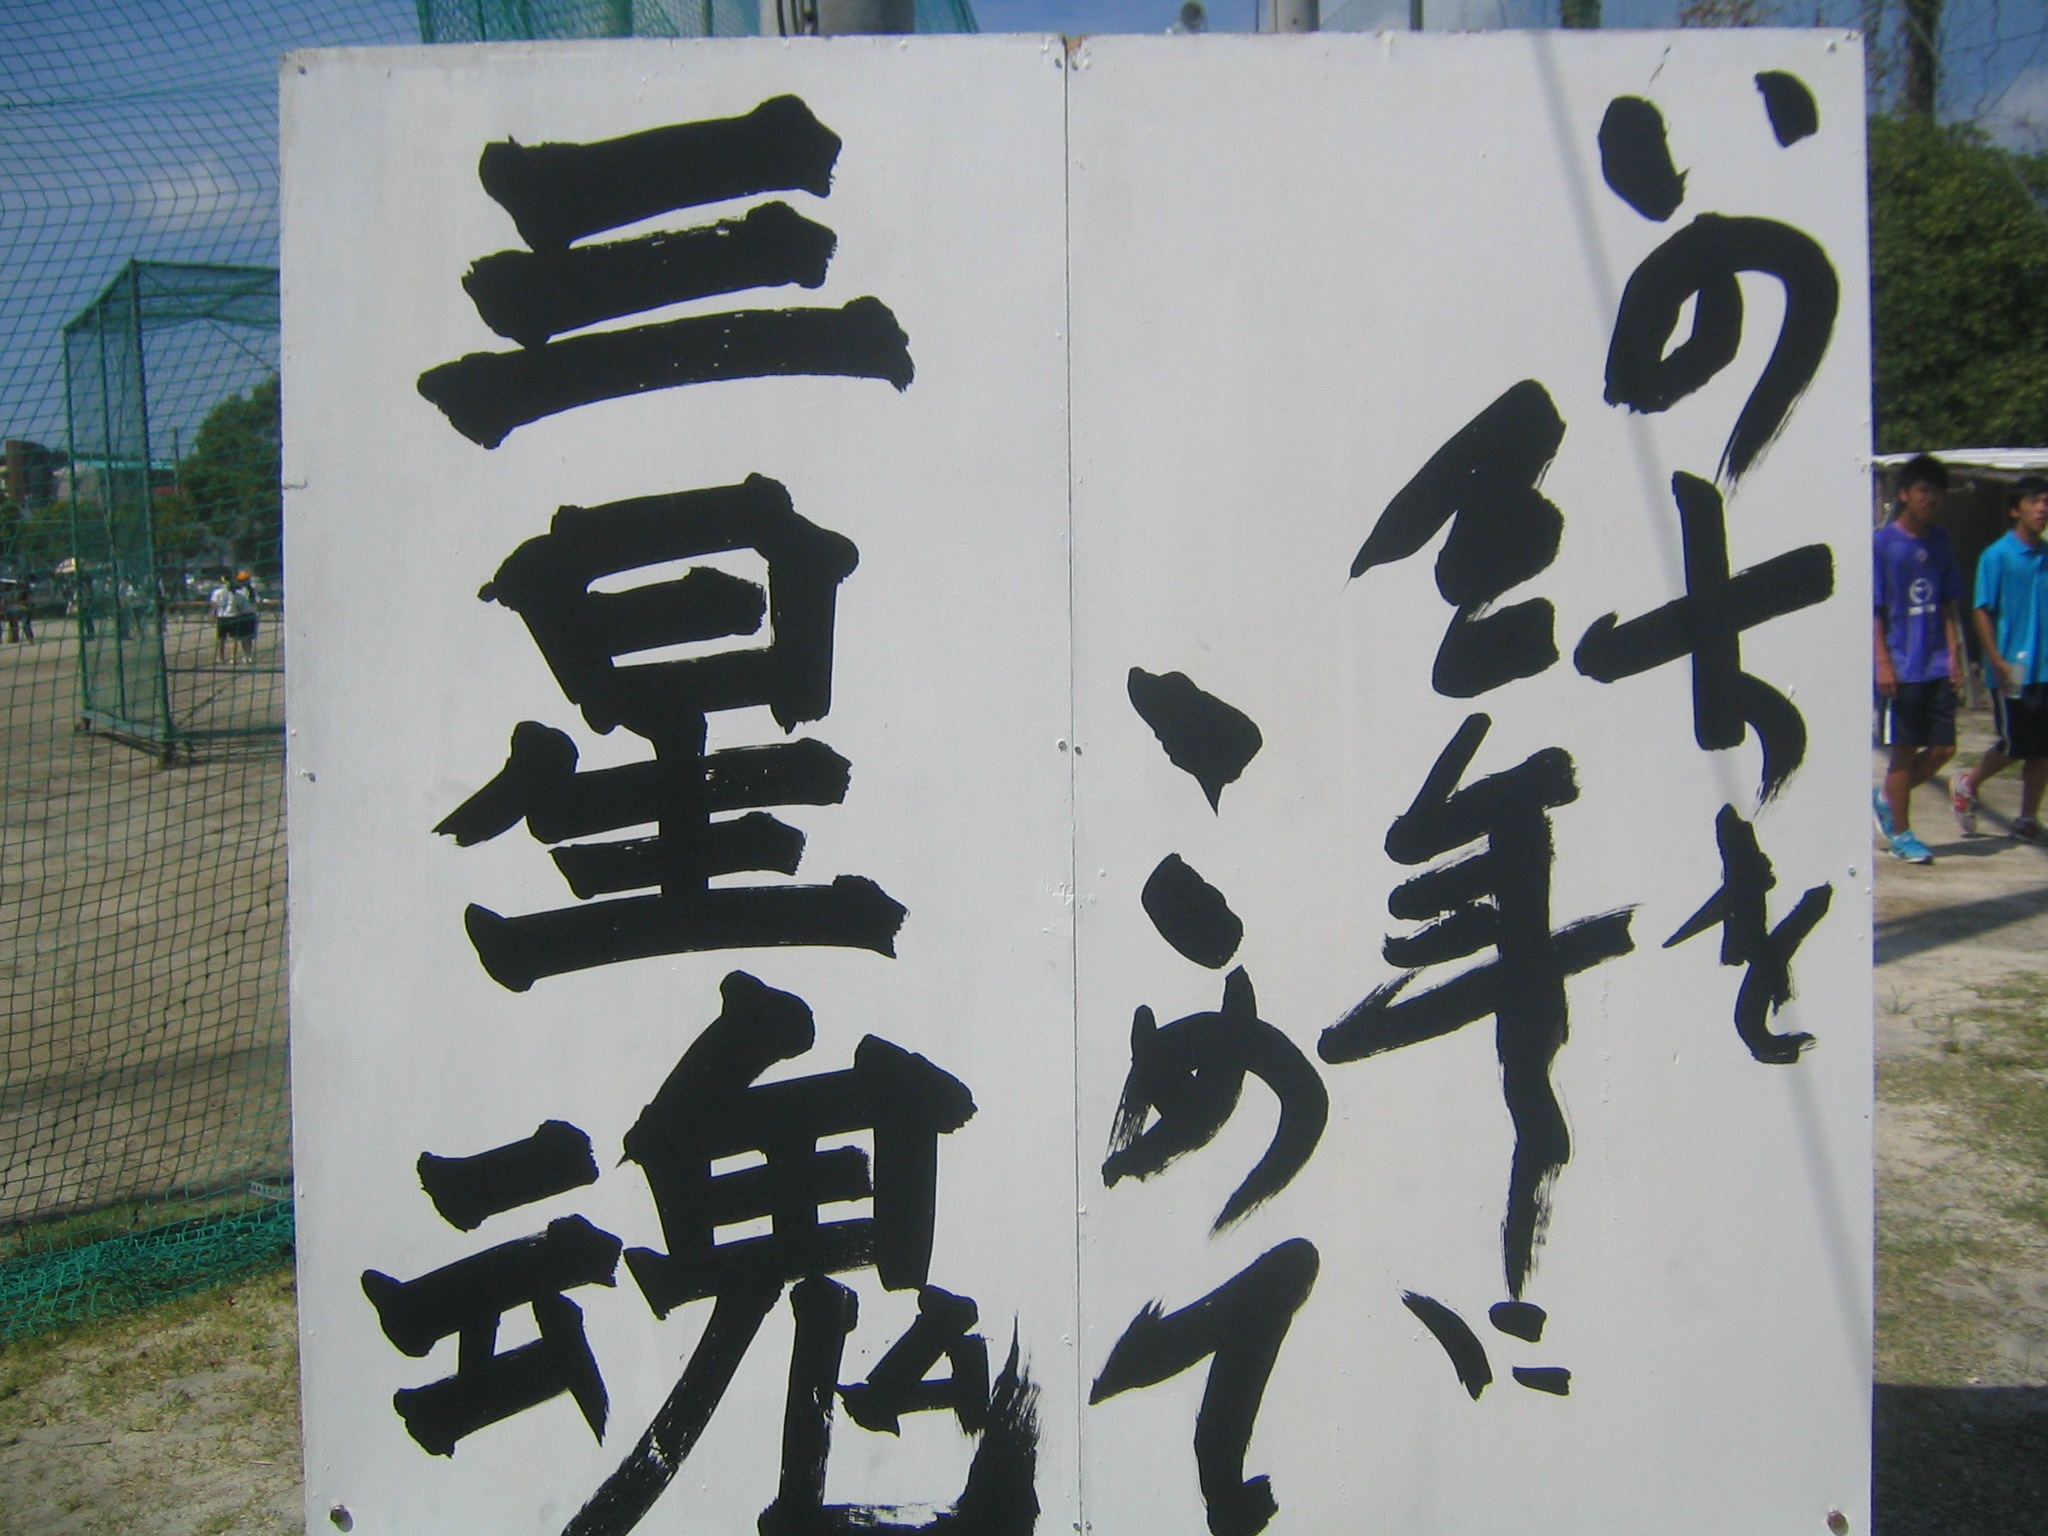 いのちを
三年に
こめて
三星魂